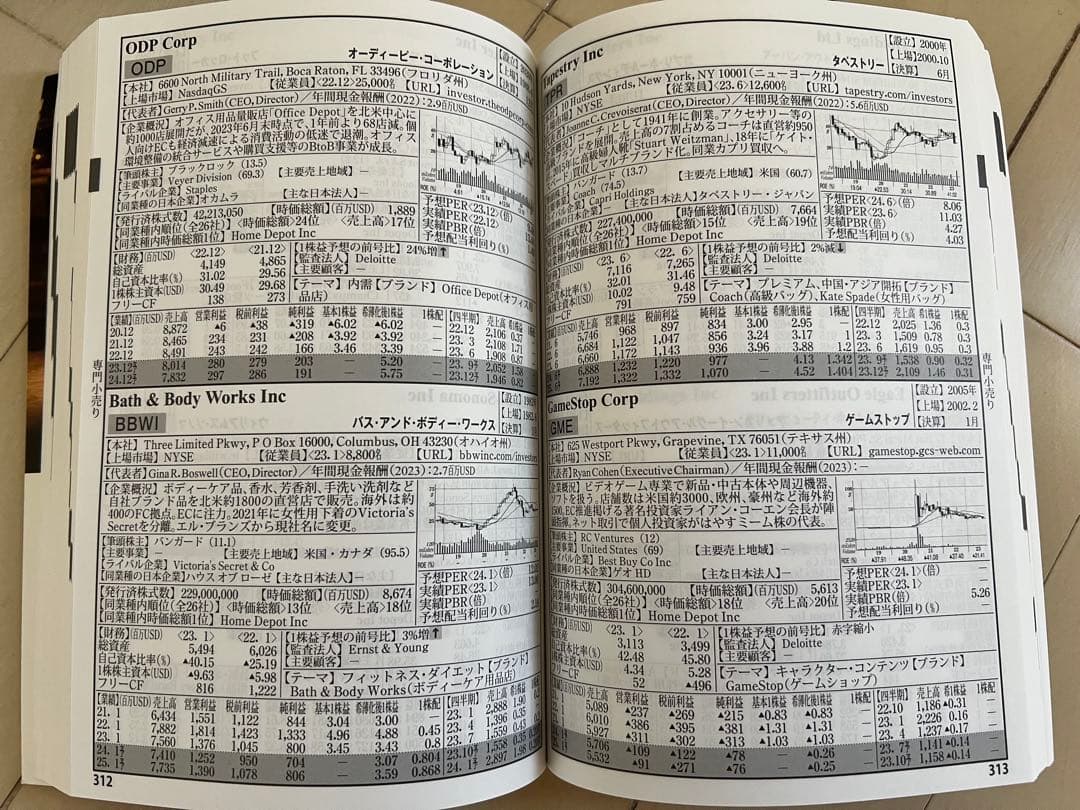 ODP Corp
ODP
オーディーピー・コーポレーション
【設立】
【上場】
【決算】
【本社】6600 North Military Trail, Boca Raton, FL 33496(フロリダ州)
【上場市場】NasdaqGS 【従業員】<22.12>25,000名 【URL】investor.theodpcorp.
【代表者】Gerry P. Smith(CEO, Director)/年間現金報酬(2022):2.9百万USD
【企業概況】オフィス用品量販店「Office Depot」を北米中心に
約1000店展開だが、2023年6月末時点で、1年前より68店減。個
人向けECも経済減速による消費活動の低迷で退潮。オフィス
環境整備の統合サービスや購買支援等のBtoB事業が成長。
【筆頭株主】ブラックロック(13.5)
【主要事業】Veyer Division(69.3) 【主要売上地域】—
【ライバル企業】Staples
【同業種の日本企業】オカムラ 【主な日本法人】—
【発行済株式数】42,213,050 【時価総額】(百万USD) 1,889
【同業種内順位(全26社)】<時価総額>24位 <売上高>17位
【同業種内時価総額1位】Home Depot Inc
予想PER<23.12>(倍)
実績PER<22.12>(倍)
実績PBR(倍)
予想配当利回り(%)
【財務】(百万USD) <22.12> <21.12>
総資産 4,149 4,865
自己資本比率(%) 31.02 29.56
1株株主資本(USD) 30.49 29.68
フリーCF 138 273
【1株益予想の前号比】24%増⬆
【監査法人】Deloitte
【主要顧客】—
【テーマ】内需【ブランド】Office Depot(オフィス用
品店)
【業績】(百万USD) 売上高 営業利益 税前利益 純利益 基本1株益 希薄化後1株益 1株配
20.12 8,872 ▲6 ▲38 ▲319 ▲6.02 ▲6.02 —
21.12 8,465 234 231 ▲208 ▲3.92 ▲3.92 —
22.12 8,491 243 242 166 3.46 3.39 —
23.12予 8,014 280 279 203 — 5.20
24.12予 7,832 297 286 191 — 5.75
【四半期】 売上高 希1株益
22.12 2,106 0.37
23. 3 2,108 1.71
23. 6 1,908 0.87
23. 9予 2,052 1.58
23.12予 1,946 0.82
専門小売り
Bath & Body Works Inc
BBWI
バス・アンド・ボディー・ワークス
【設立】
【上場】
【決算】
【本社】Three Limited Pkwy, P O Box 16000, Columbus, OH 43230(オハイオ州)
【上場市場】NYSE 【従業員】<23.1>8,800名 【URL】bbwinc.com/investors
【代表者】Gina R. Boswell(CEO, Director)/年間現金報酬(2023):2.7百万USD
【企業概況】ボディーケア品、香水、芳香剤、手洗い洗剤など
自社ブランド品を北米約1800の直営店で販売。海外は約
400のFC拠点。ECに注力。2021年に女性用下着のVictoria's
Secretを分離。エル・ブランズから現社名に変更。
【筆頭株主】バンガード(11.1)
【主要事業】— 【主要売上地域】米国・カナダ(95.5)
【ライバル企業】Victoria's Secret & Co
【同業種の日本企業】ハウス オブ ローゼ 【主な日本法人】—
【発行済株式数】229,000,000 【時価総額】(百万USD) 8,674
【同業種内順位(全26社)】<時価総額>13位 <売上高>18位
【同業種内時価総額1位】Home Depot Inc
予想PER<24.1>(倍)
実績PER<23.1>(倍)
実績PBR(倍)
予想配当利回り(%)
【財務】(百万USD) <23. 1> <22. 1>
総資産 5,494 6,026
自己資本比率(%) ▲40.15 ▲25.19
1株株主資本(USD) ▲9.63 ▲5.98
フリーCF 816 1,222
【1株益予想の前号比】3%増⬆
【監査法人】Ernst & Young
【主要顧客】—
【テーマ】フィットネス・ダイエット【ブランド】
Bath & Body Works(ボディーケア用品店)
【業績】(百万USD) 売上高 営業利益 税前利益 純利益 基本1株益 希薄化後1株益 1株配
21. 1 6,434 1,551 1,122 844 3.04 3.00 —
22. 1 7,882 1,814 1,423 1,333 4.96 4.88 0.45
23. 1 7,560 1,376 1,045 800 3.45 3.43 0.8
24. 1予 7,410 1,252 950 704 — 3.07 0.804
25. 1予 7,735 1,390 1,078 806 — 3.59 0.868
【四半期】 売上高 希1株益
23. 1 2,888 1.90
23. 4 1,396 0.35
23.10予 1,558 0.35
24. 1予 2,897 1.98
312
Tapestry Inc
TPR
タペストリー
【設立】2000年
【上場】2000.10
【決算】6月
10 Hudson Yards, New York, NY 10001(ニューヨーク州)
NYSE 【従業員】<23.6>12,600名 【URL】tapestry.com/investors
Joanne C. Crevoiserat(CEO, Director)/年間現金報酬(2022):5.6百万USD
「コーチ」として1941年に創業。アクセサリー等の
ブランドを展開。売上高の7割占めるコーチは直営約950
店。2015年に高級婦人靴「Stuart Weitzman」、18年に「ケイト・
買収、マルチブランド化。同業カプリ買収へ。
【筆頭株主】バンガード(13.7)
【主要事業】Coach(74.5) 【主要売上地域】米国(60.7)
【ライバル企業】Capri Holdings
【同業種の日本企業】— 【主な日本法人】タペストリー・ジャパン
【発行済株式数】227,400,000 【時価総額】(百万USD) 7,664
【同業種内順位(全26社)】<時価総額>15位 <売上高>19位
【同業種内時価総額1位】Home Depot Inc
予想PER<24.6>(倍) 8.06
実績PER<23.6>(倍) 11.03
実績PBR(倍) 4.27
予想配当利回り(%) 4.03
【財務】(百万USD) <23. 6> <22. 6>
総資産 7,116 7,265
自己資本比率(%) 32.01 31.46
1株株主資本(USD) 10.02 9.48
フリーCF 791 759
【1株益予想の前号比】2%減⬇
【監査法人】Deloitte
【主要顧客】—
【テーマ】プレミアム、中国・アジア開拓【ブランド】
Coach(高級バッグ)、Kate Spade(女性用バッグ)
【業績】(百万USD) 売上高 営業利益 税前利益 純利益 基本1株益 希薄化後1株益 1株配
5,746 968 897 834 3.00 2.95 —
6,684 1,122 1,047 856 3.24 3.17 1
6,660 1,172 1,143 936 3.96 3.88 1.2
6,888 1,232 1,220 977 — 4.13 1.342
7,192 1,322 1,332 1,070 — 4.52 1.404
【四半期】 売上高 希1株益 1株配
22.12 2,025 1.36 0.3
23. 3 1,509 0.78 0.3
23. 6 1,619 0.95 0.3
23. 9予 1,538 0.90 0.32
23.12予 2,109 1.46 0.31
専門小売り
GameStop Corp
GME
ゲームストップ
【設立】2005年
【上場】2002. 2
【決算】1月
【本社】625 Westport Pkwy, Grapevine, TX 76051(テキサス州)
【上場市場】NYSE 【従業員】<23.1>11,000名 【URL】gamestop.gcs-web.com
【代表者】Ryan Cohen(Executive Chairman)/年間現金報酬(2023):—
【企業概況】ビデオゲーム専業で新品・中古本体や周辺機器、
ソフトを扱う。店舗数は米国約3000、欧州、豪州など海外約
1500。EC推進掲げる著名投資家ライアン・コーエン会長が陣
頭指揮。ネット取引で個人投資家がはやすミーム株の代表。
【筆頭株主】RC Ventures(12)
【主要事業】United States(69) 【主要売上地域】—
【ライバル企業】Best Buy Co Inc
【同業種の日本企業】ゲオ HD 【主な日本法人】—
【発行済株式数】304,600,000 【時価総額】(百万USD) 5,613
【同業種内順位(全26社)】<時価総額>18位 <売上高>20位
【同業種内時価総額1位】Home Depot Inc
予想PER<24.1>(倍) —
実績PER<23.1>(倍) —
実績PBR(倍) 5.26
予想配当利回り(%) —
【財務】(百万USD) <23. 1> <22. 1>
総資産 3,113 3,499
自己資本比率(%) 42.48 45.80
1株株主資本(USD) 4.34 5.28
フリーCF 52 ▲496
【1株益予想の前号比】赤字縮小
【監査法人】Deloitte
【主要顧客】—
【テーマ】キャラクター・コンテンツ【ブランド】
GameStop(ゲームショップ)
【業績】(百万USD) 売上高 営業利益 税前利益 純利益 基本1株益 希薄化後1株益 1株配
5,089 ▲237 ▲269 ▲215 ▲0.83 ▲0.83 —
6,010 ▲386 ▲395 ▲381 ▲1.31 ▲1.31 —
5,927 ▲311 ▲302 ▲313 ▲1.03 ▲1.03 —
5,706 ▲109 ▲122 ▲78 — ▲0.26 —
5,532 ▲91 ▲271 ▲76 — ▲0.25 —
【四半期】 売上高 希1株益 1株配
22.10 1,186 ▲0.31 —
23. 1 2,226 0.16 —
23. 4 1,237 ▲0.17 —
23. 7予 1,141 ▲0.14 —
23.10予 1,158 ▲0.14 —
313